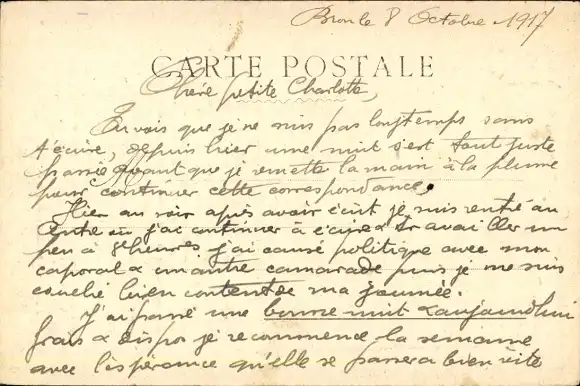 Bron le 8 Octobre 1917
CARTE POSTALE
Chère petite Charlotte,
Tu vois que je ne suis pas longtemps sans
t'écrire, depuis hier une nuit s'est tout juste
passée avant que je remette la main à la plume
pour continuer cette correspondance.
Hier au soir après avoir écrit je suis rentré au
centre où j'ai continuer à écrire & travailler un
peu à 8 heures j'ai causé politique avec mon
caporal & un autre camarade puis je me suis
couché bien content de ma journée.
J'ai passé une bonne nuit & aujourd'hui
frais & dispos je recommence la semaine
avec l'espérance qu'elle se passera bien vite